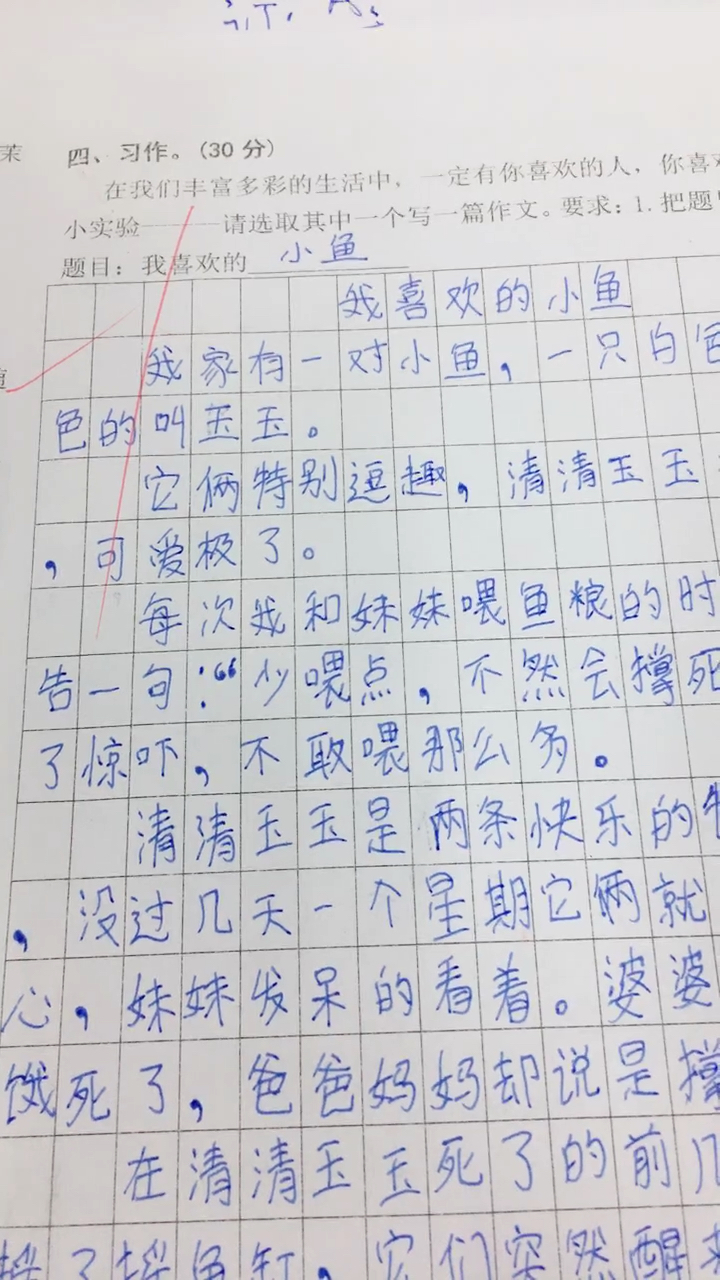 茉
四、习作。(30分)
在我们丰富多彩的生活中，一定有你喜欢的人，你喜欢
小实验———请选取其中一个写一篇作文。要求：1.把题
题目：我喜欢的小鱼
我喜欢的小鱼
我家有一对小鱼，一只白色
色的叫玉玉。
它俩特别逗趣，清清玉玉
，可爱极了。
每次我和妹妹喂鱼粮的时
告一句：“少喂点，不然会撑死
了惊吓，不敢喂那么多。
清清玉玉是两条快乐的
，没过几天一个星期它俩就
心，妹妹发呆的看着。婆婆
饿死了，爸爸妈妈却说是撑
在清清玉玉死了的前几
了 鱼缸，它们突然醒